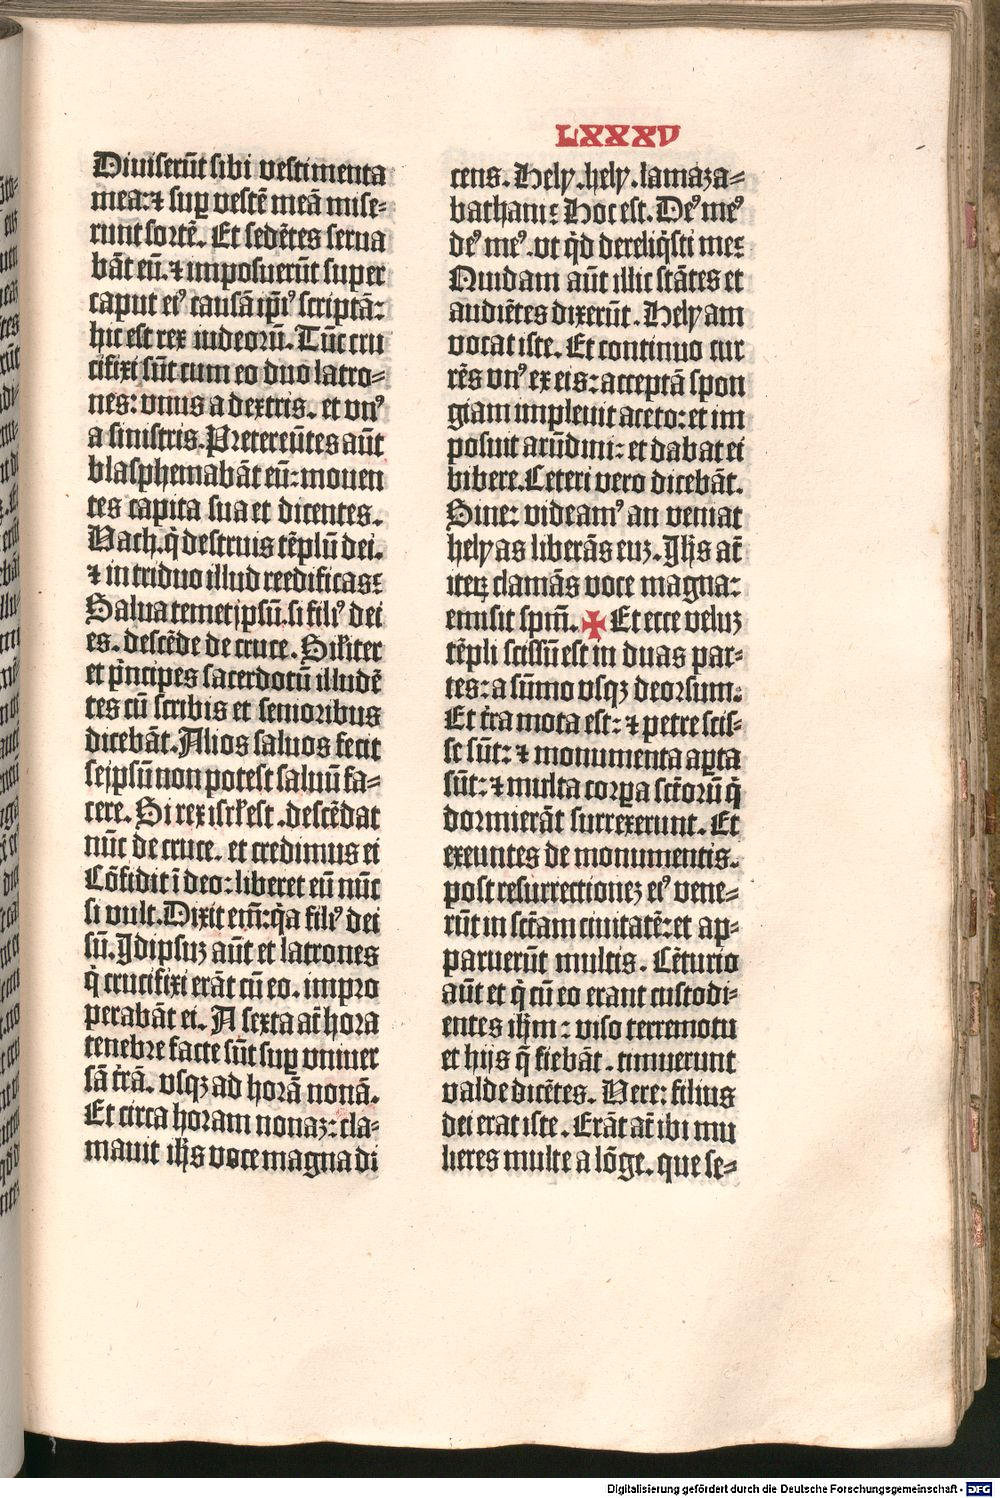 LXXXV
Diuiserūt sibi vestimenta
mea: ⁊ suꝑ vestē meā mise⸗
runt sortē. Et sedētes serua
bāt eū. ⁊ imposuerūt super
caput eiꝰ causā ip̄iꝰ scriptā:
hic est rex iudeorū. Tūc cru
cifixi sūt cum eo duo latro⸗
nes: vnus a dextris. et vnꝰ
a sinistris. Pretereūtes aūt
blasphemabāt eū: mouen
tes capita sua et dicentes.
Uach. q̇ destruis tēplū dei.
⁊ in triduo illud reedificas:
Salua temetjpsū. si filiꝰ dei
es. descēde de cruce. Sil̄iter
et p̄ncipes sacerdotū illudē
tes cū scribis et senioribus
dicebāt. Alios saluos fecit
sejpsū non potest saluū fa⸗
cere. Si rex isrl̄ est. descēdat
nūc de cruce. et credimus ei
Cōfidit ī deo: liberet eū nūc
si vult. Dixit em̄: q̇a filiꝰ dei
sū. Jdipsuz aūt et latrones
q̇ crucifixi erāt cū eo. impro
perabāt ei. A sexta at̄ hora
tenebre facte sūt suꝑ vniuer
sā tr̄ā. vsqz ad horā nonā.
Et circa horam nonaz: cla⸗
mauit ih̄s voce magna di
cens. Hely. hely. lamaza⸗
bathani: Hoc est. Deꝰ meꝰ
deꝰ meꝰ. vt q̇d dereliq̇sti me:
Quidam aūt illic stātes et
audiētes dixerūt. Helyam
vocat iste. Et continuo cur
rēs vnꝰ ex eis: acceptā spon
giam impleuit aceto: et im
posuit arūdini: et dabat ei
bibere. Ceteri vero dicebāt.
Sine: videamꝰ an veniat
helyas liberās euz. Jh̄s at̄
iteꝝ clamās voce magna:
emisit spm̄. ✠ Et ecce veluz
tēpli scissū est in duas par⸗
tes: a sūmo vsqz deorsum:
Et tr̄a mota est: ⁊ petre scis⸗
se sūt: ⁊ monumenta aꝑta
sūt: ⁊ multa corꝑa sc̄torū q̄
dormierāt surrexerunt. Et
exeuntes de monumentis.
post resurrectionez eiꝰ vene⸗
rūt in sc̄tam ciuitatē: et ap⸗
paruerūt multis. Cēturio
aūt et q̇ cū eo erant custodi⸗
entes ih̄m: viso terremotu
et hijs q̄ fiebāt. timuerunt
valde dicētes. Vere: filius
dei erat iste. Erāt at̄ ibi mu
lieres multe a lōge. que se⸗
Digitalisierung gefördert durch die Deutsche Forschungsgemeinschaft - DFG